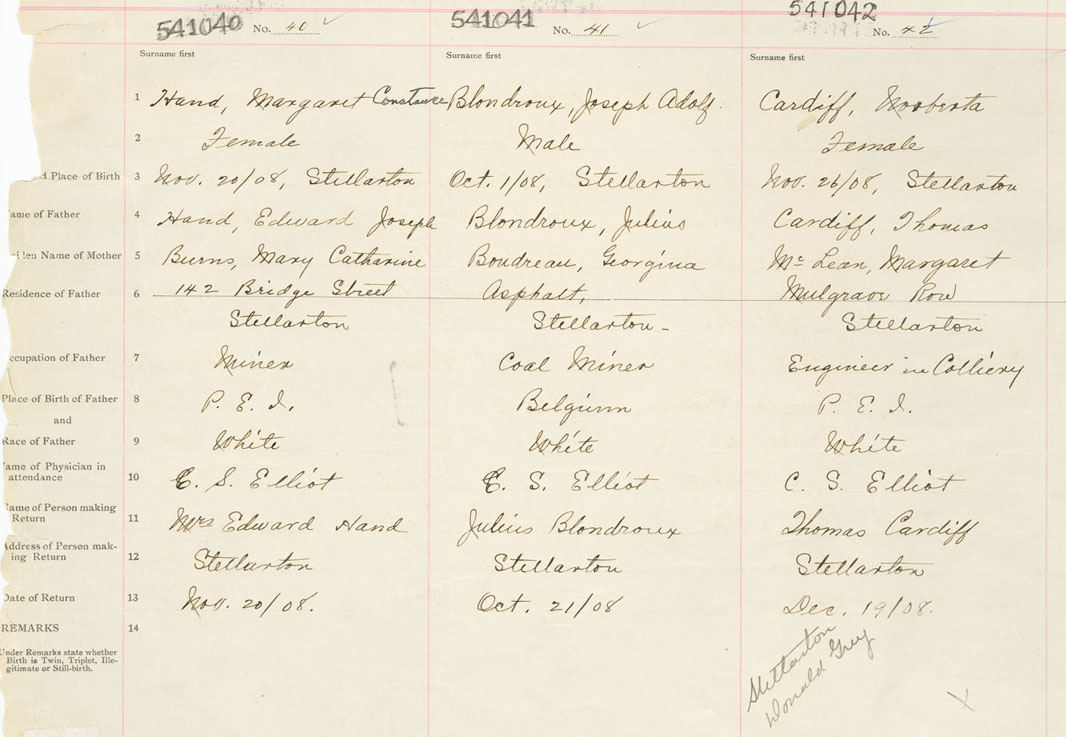 541040 No. 40 541041 No. 41 541042 No. 42
Surname first Surname first Surname first
1 Hand, Margaret Constance Blondroux, Joseph Adolf. Cardiff, Norberta
2 Female Male Female
d Place of Birth 3 Nov. 20/08, Stellarton Oct. 1/08, Stellarton Nov. 26/08, Stellarton
ame of Father 4 Hand, Edward Joseph Blondroux, Julius Cardiff, Thomas
iden Name of Mother 5 Burns, Mary Catharine Boudreau, Georgina Mc Lean, Margaret
Residence of Father 6 142 Bridge Street Asphalt, Mulgrave Row
Stellarton Stellarton - Stellarton
ccupation of Father 7 Miner Coal Miner Engineer in Colliery
Place of Birth of Father 8 P. E. I. Belgium P. E. I.
and
Race of Father 9 White White White
ame of Physician in
attendance 10 C. S. Elliot C. S. Elliot C. S. Elliot
ame of Person making
Return 11 Mrs Edward Hand Julius Blondroux Thomas Cardiff
Address of Person mak-
ing Return 12 Stellarton Stellarton Stellarton
Date of Return 13 Nov. 20/08. Oct. 21/08 Dec. 19/08.
REMARKS 14
Under Remarks state whether
Birth is Twin, Triplet, Ille-
gitimate or Still-birth.
Stellarton
Donald Grey
X